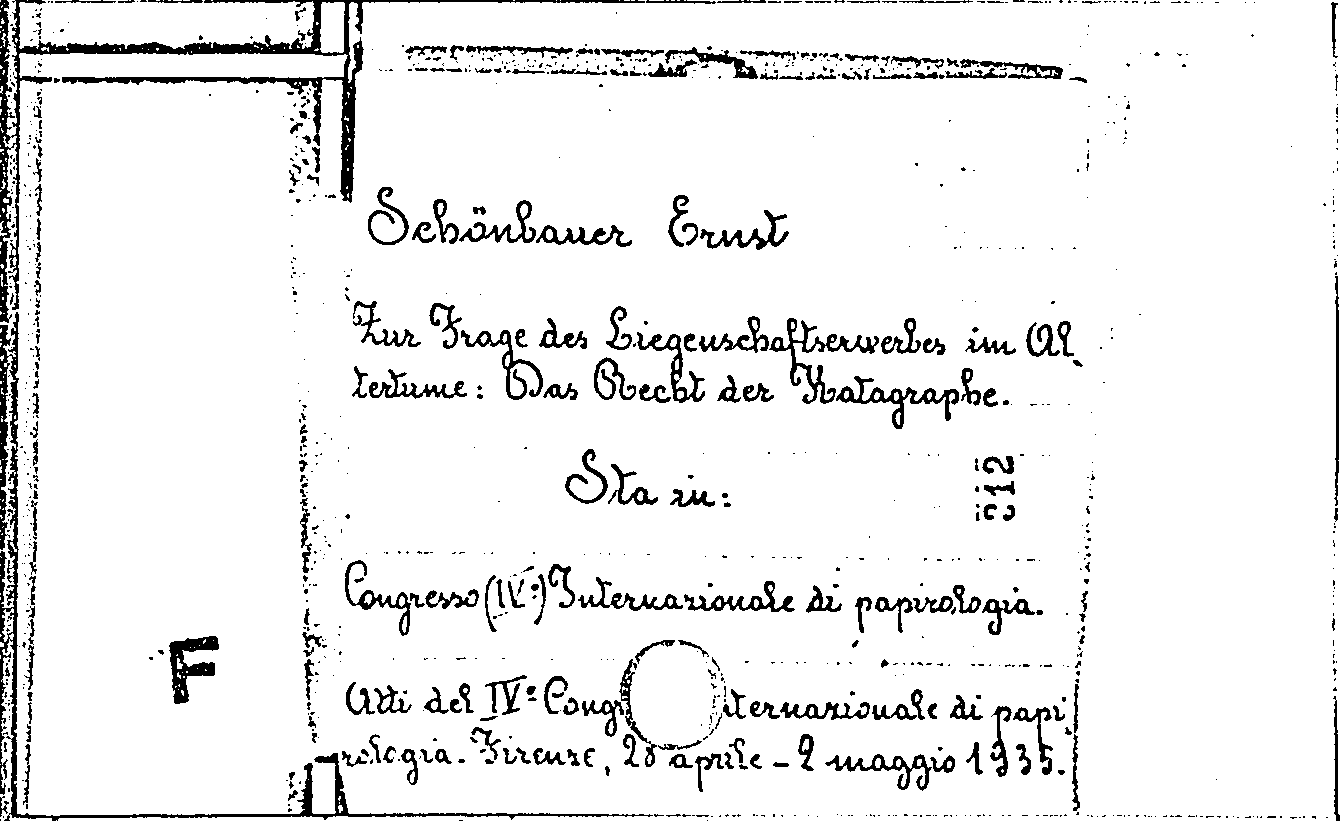 Schönbauer Ernst
Zur Frage des Liegenschaftserwerbes im Al-
tertume: Das Recht der Katagraphe.
Sta in:
312
Congresso (IV°) Internazionale di papirologia.
F
Atti del IV° Cong ternazionale di papi-
rologia. Firenze, 28 aprile - 2 maggio 1935.